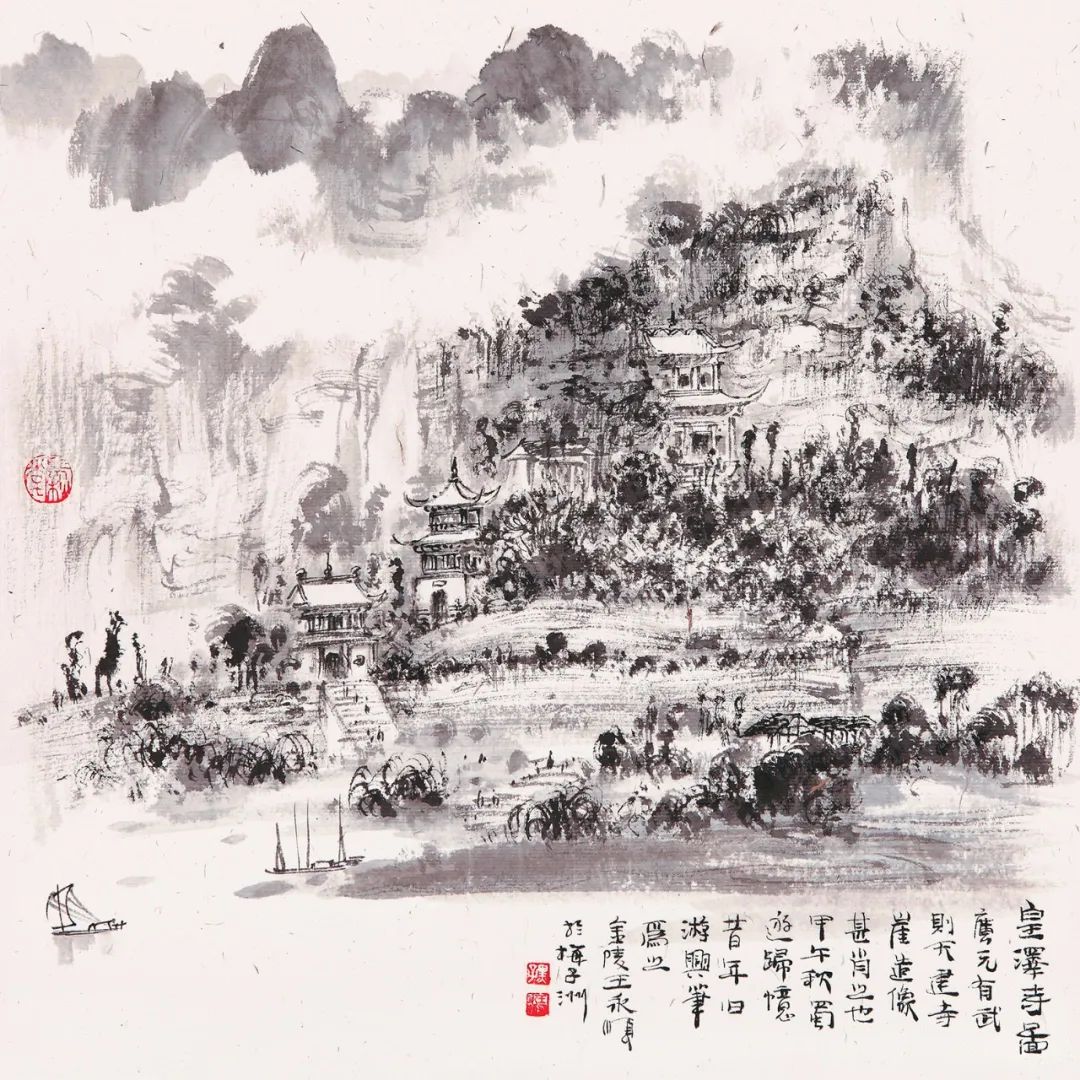 皇澤寺圖
廣元有武
則天建寺
崖造像
甚肖之也
甲午秋蜀
遊歸憶
昔年旧
游興筆
爲之
金陵王永順
於梅子洲